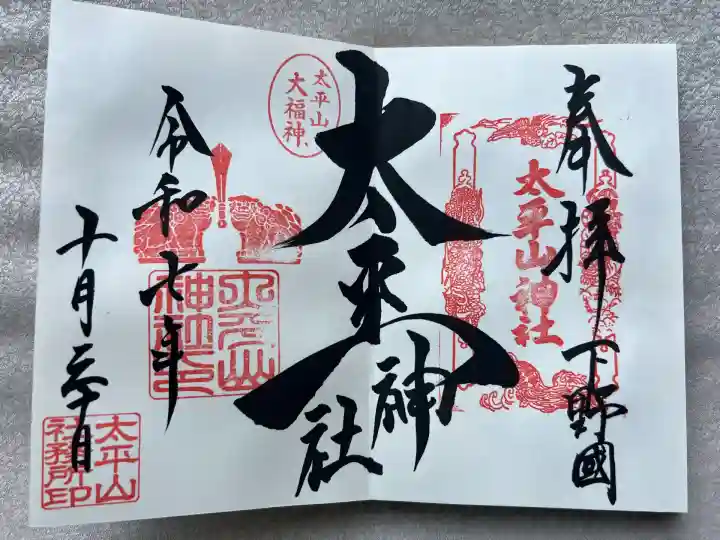 奉拝 下野國
太平山神社
太平山神社
太平山
大福神
令和七年
太平山
神社之印
十月
太平山
社務所印